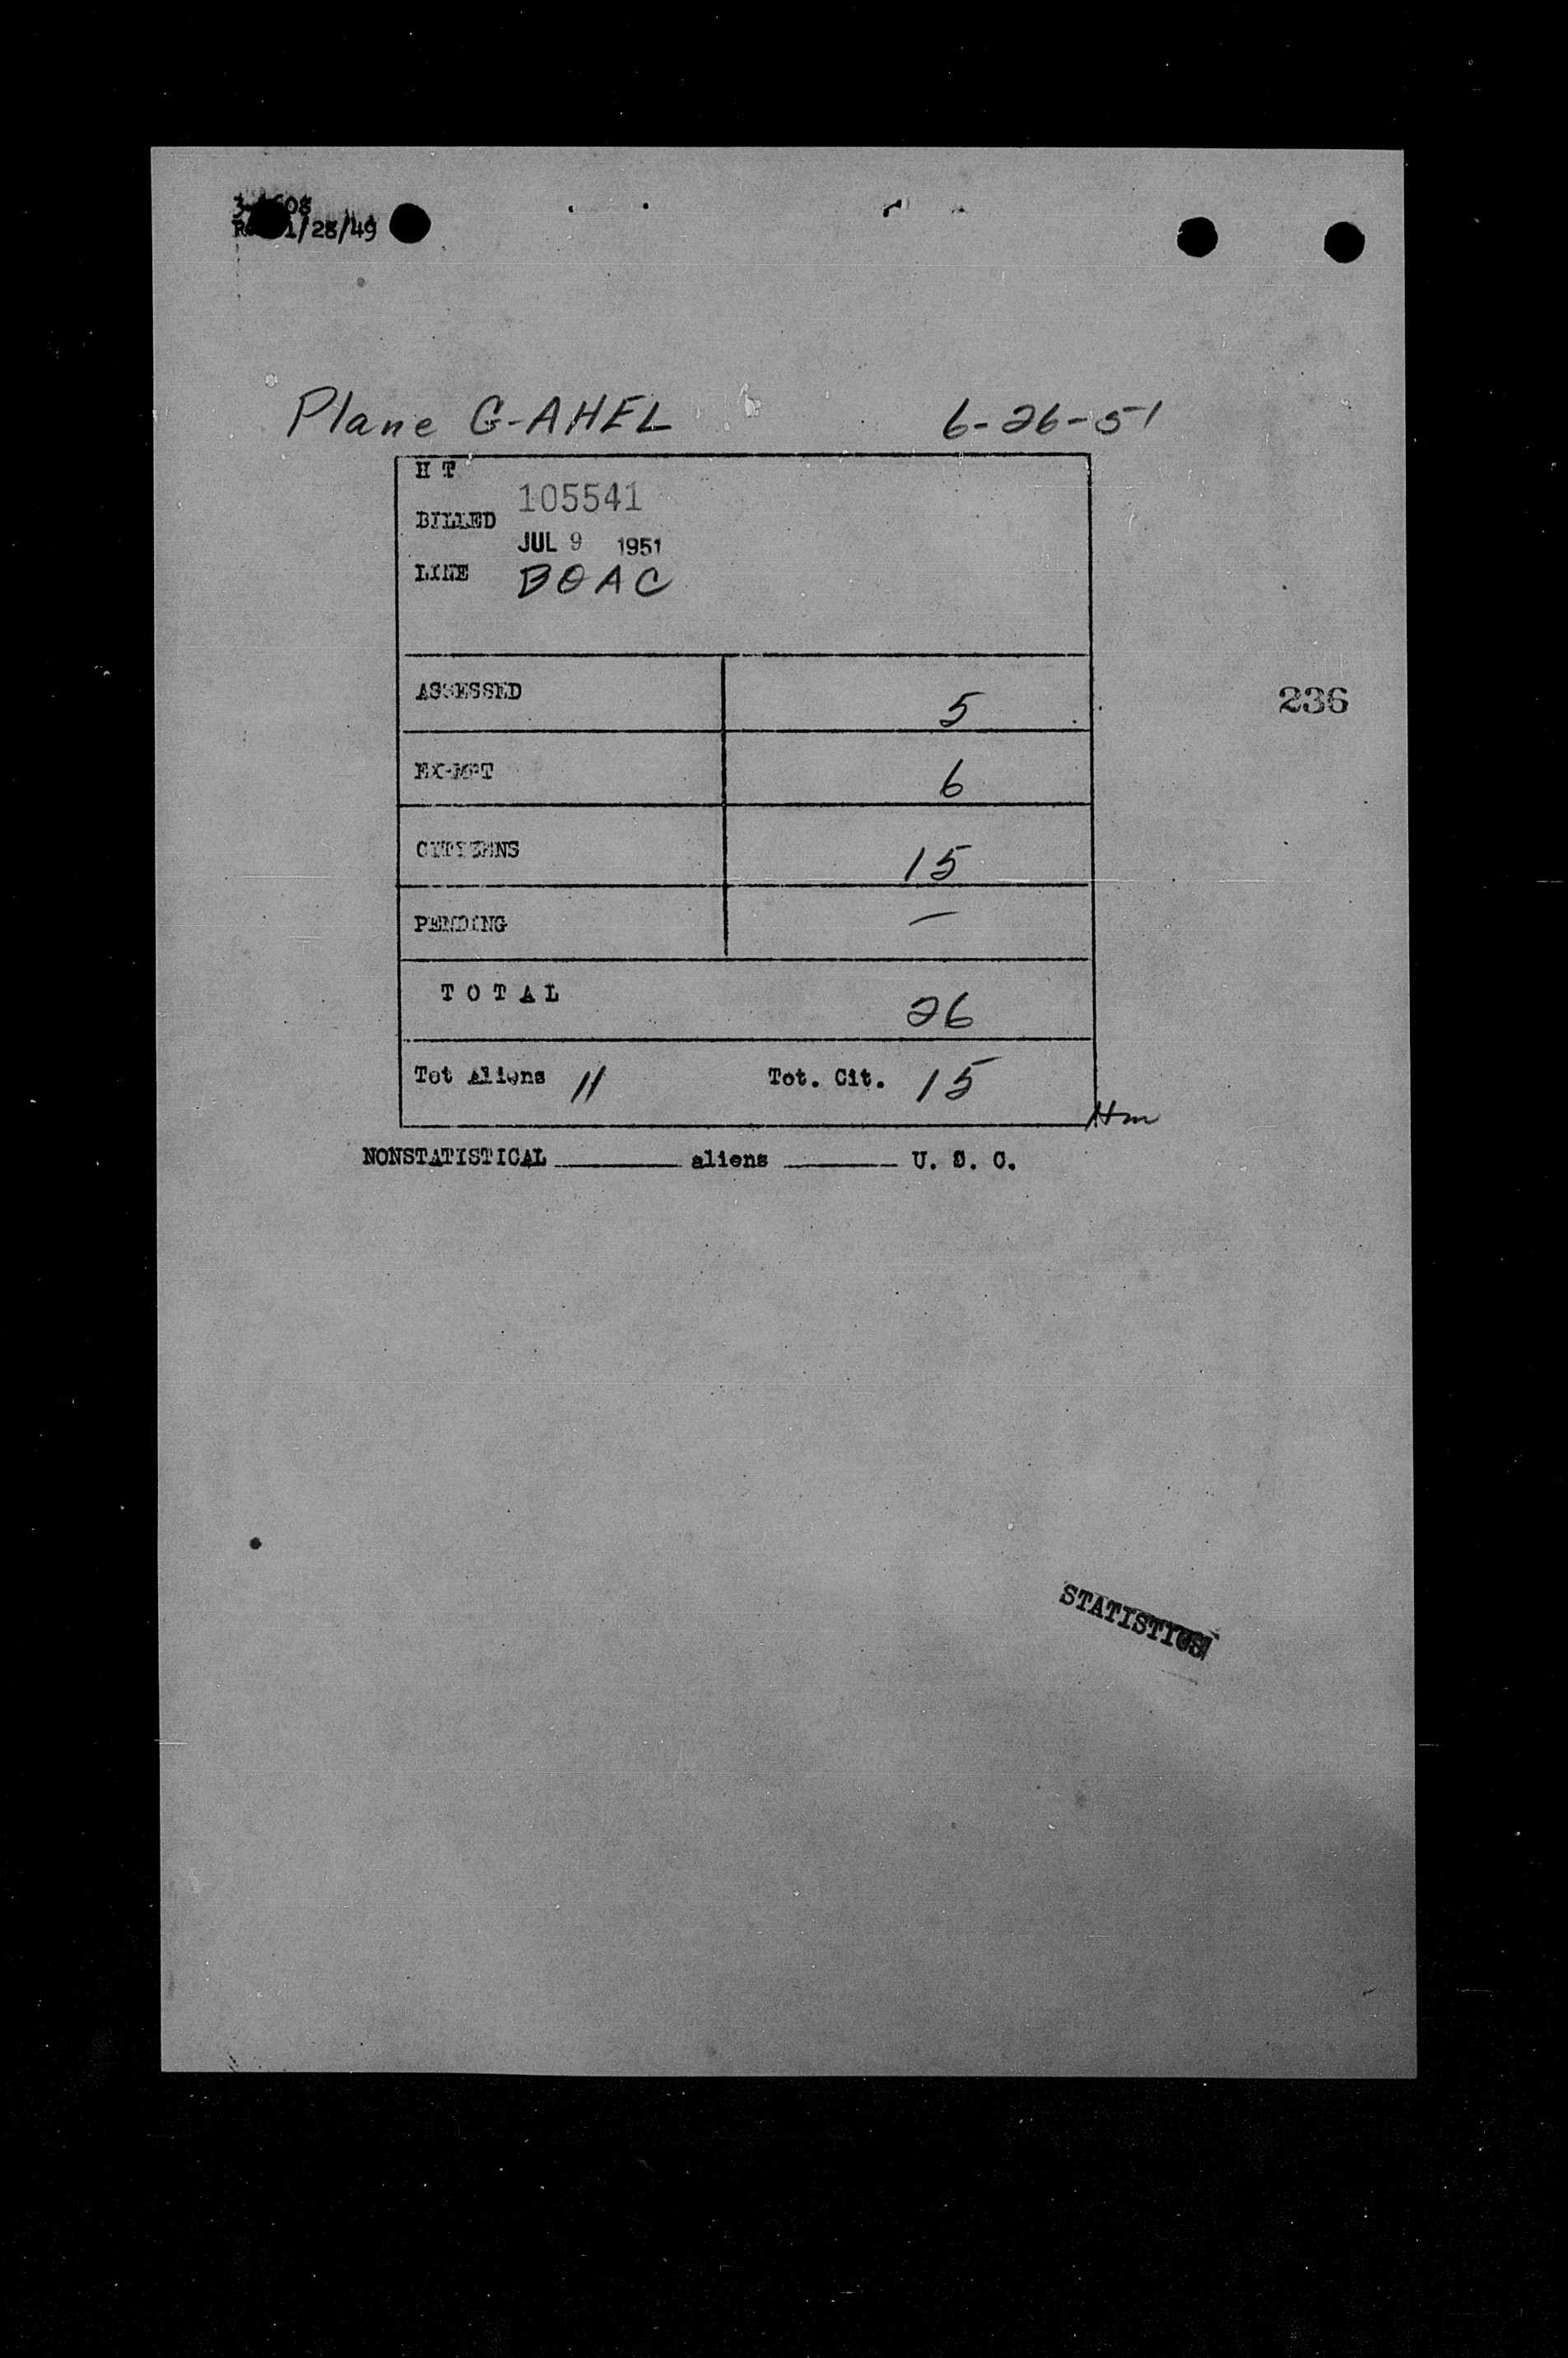 1/28/49
Plane G-AHEL 6-26-51
H T
105541
BILLED
JUL 9 1951
LINE BOAC
ASSESSED 5
236
EXEMPT 6
CITIZENS 15
PENDING —
TOTAL 26
Tot Aliens 11 Tot. Cit. 15
Hm
NONSTATISTICAL ________ aliens ________ U. S. C.
STATISTICS